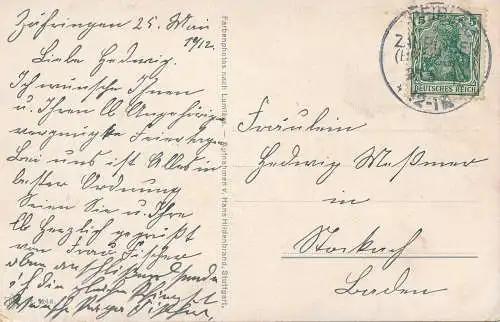 Zähringen 25. Mai
1912.
Liebe Hedwig.
Ich wünsche Ihnen
u. Ihren lb Angehörigen
vergnügte Feiertage
Bei uns ist Alles in
bester Ordnung
Seien Sie u. Ihre
lb Herzlich gegrüßt
von Frau Fischer
oben anschließend sende
ich die gleichen
Farbenphotos nach Lumière. – Aufnahmen v. Hans Hildenbrand, Stuttgart.
5
DEUTSCHES REICH
12-1N
Fräulein
Hedwig Meßmer
in
Stockach
Baden